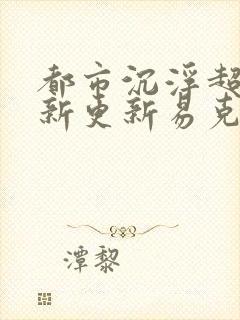 都市沉浮超
新更新易克
潭黎